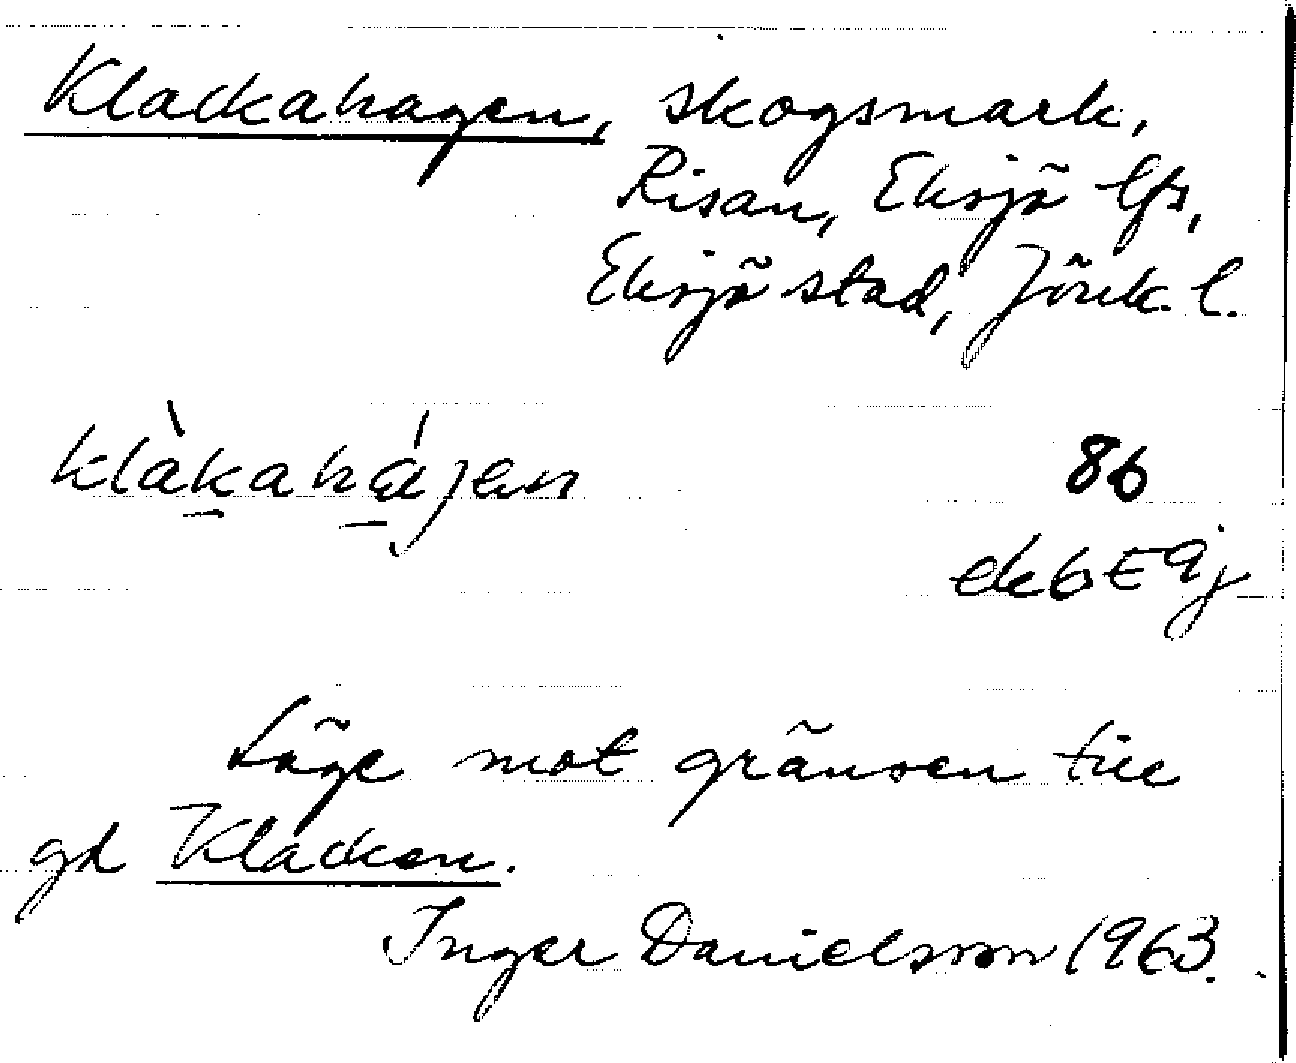 Klackahagen, skogsmark,
Risan, Eksjö lfs,
Eksjö stad, Jönk. l.
klàkahájen
86
ek6E9j
Läge mot gränsen till
gd Klacken.
Inger Danielsson 1963.